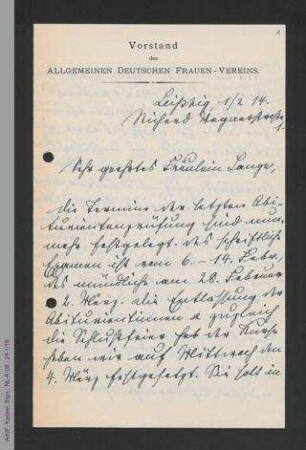 1
Vorstand
des
ALLGEMEINEN DEUTSCHEN FRAUEN-VEREINS.
Leipzig, 1/2 14.
Richard Wagnerstraße
1.
Sehr geehrtes Fräulein Lange,
die Termine der letzten Abi-
turientenprüfung sind nun-
mehr festgelegt. das schriftliche
Examen ist vom 6. - 14. Febr.,
das mündliche am 28. Februar
2. März. die Entlassung der
Abiturientinnen & zugleich
die Schlußfeier der Kurse
haben wir auf Mittwoch den
4. März festgesetzt. Sie soll in
AddF, Kassel, Sign.: NL-K-08 ; 24-1/16